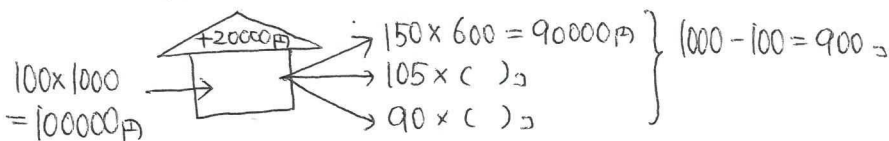 +20000円
100×1000
=100000円
150×600=90000円
105×( )コ
90×( )コ
1000-100=900コ